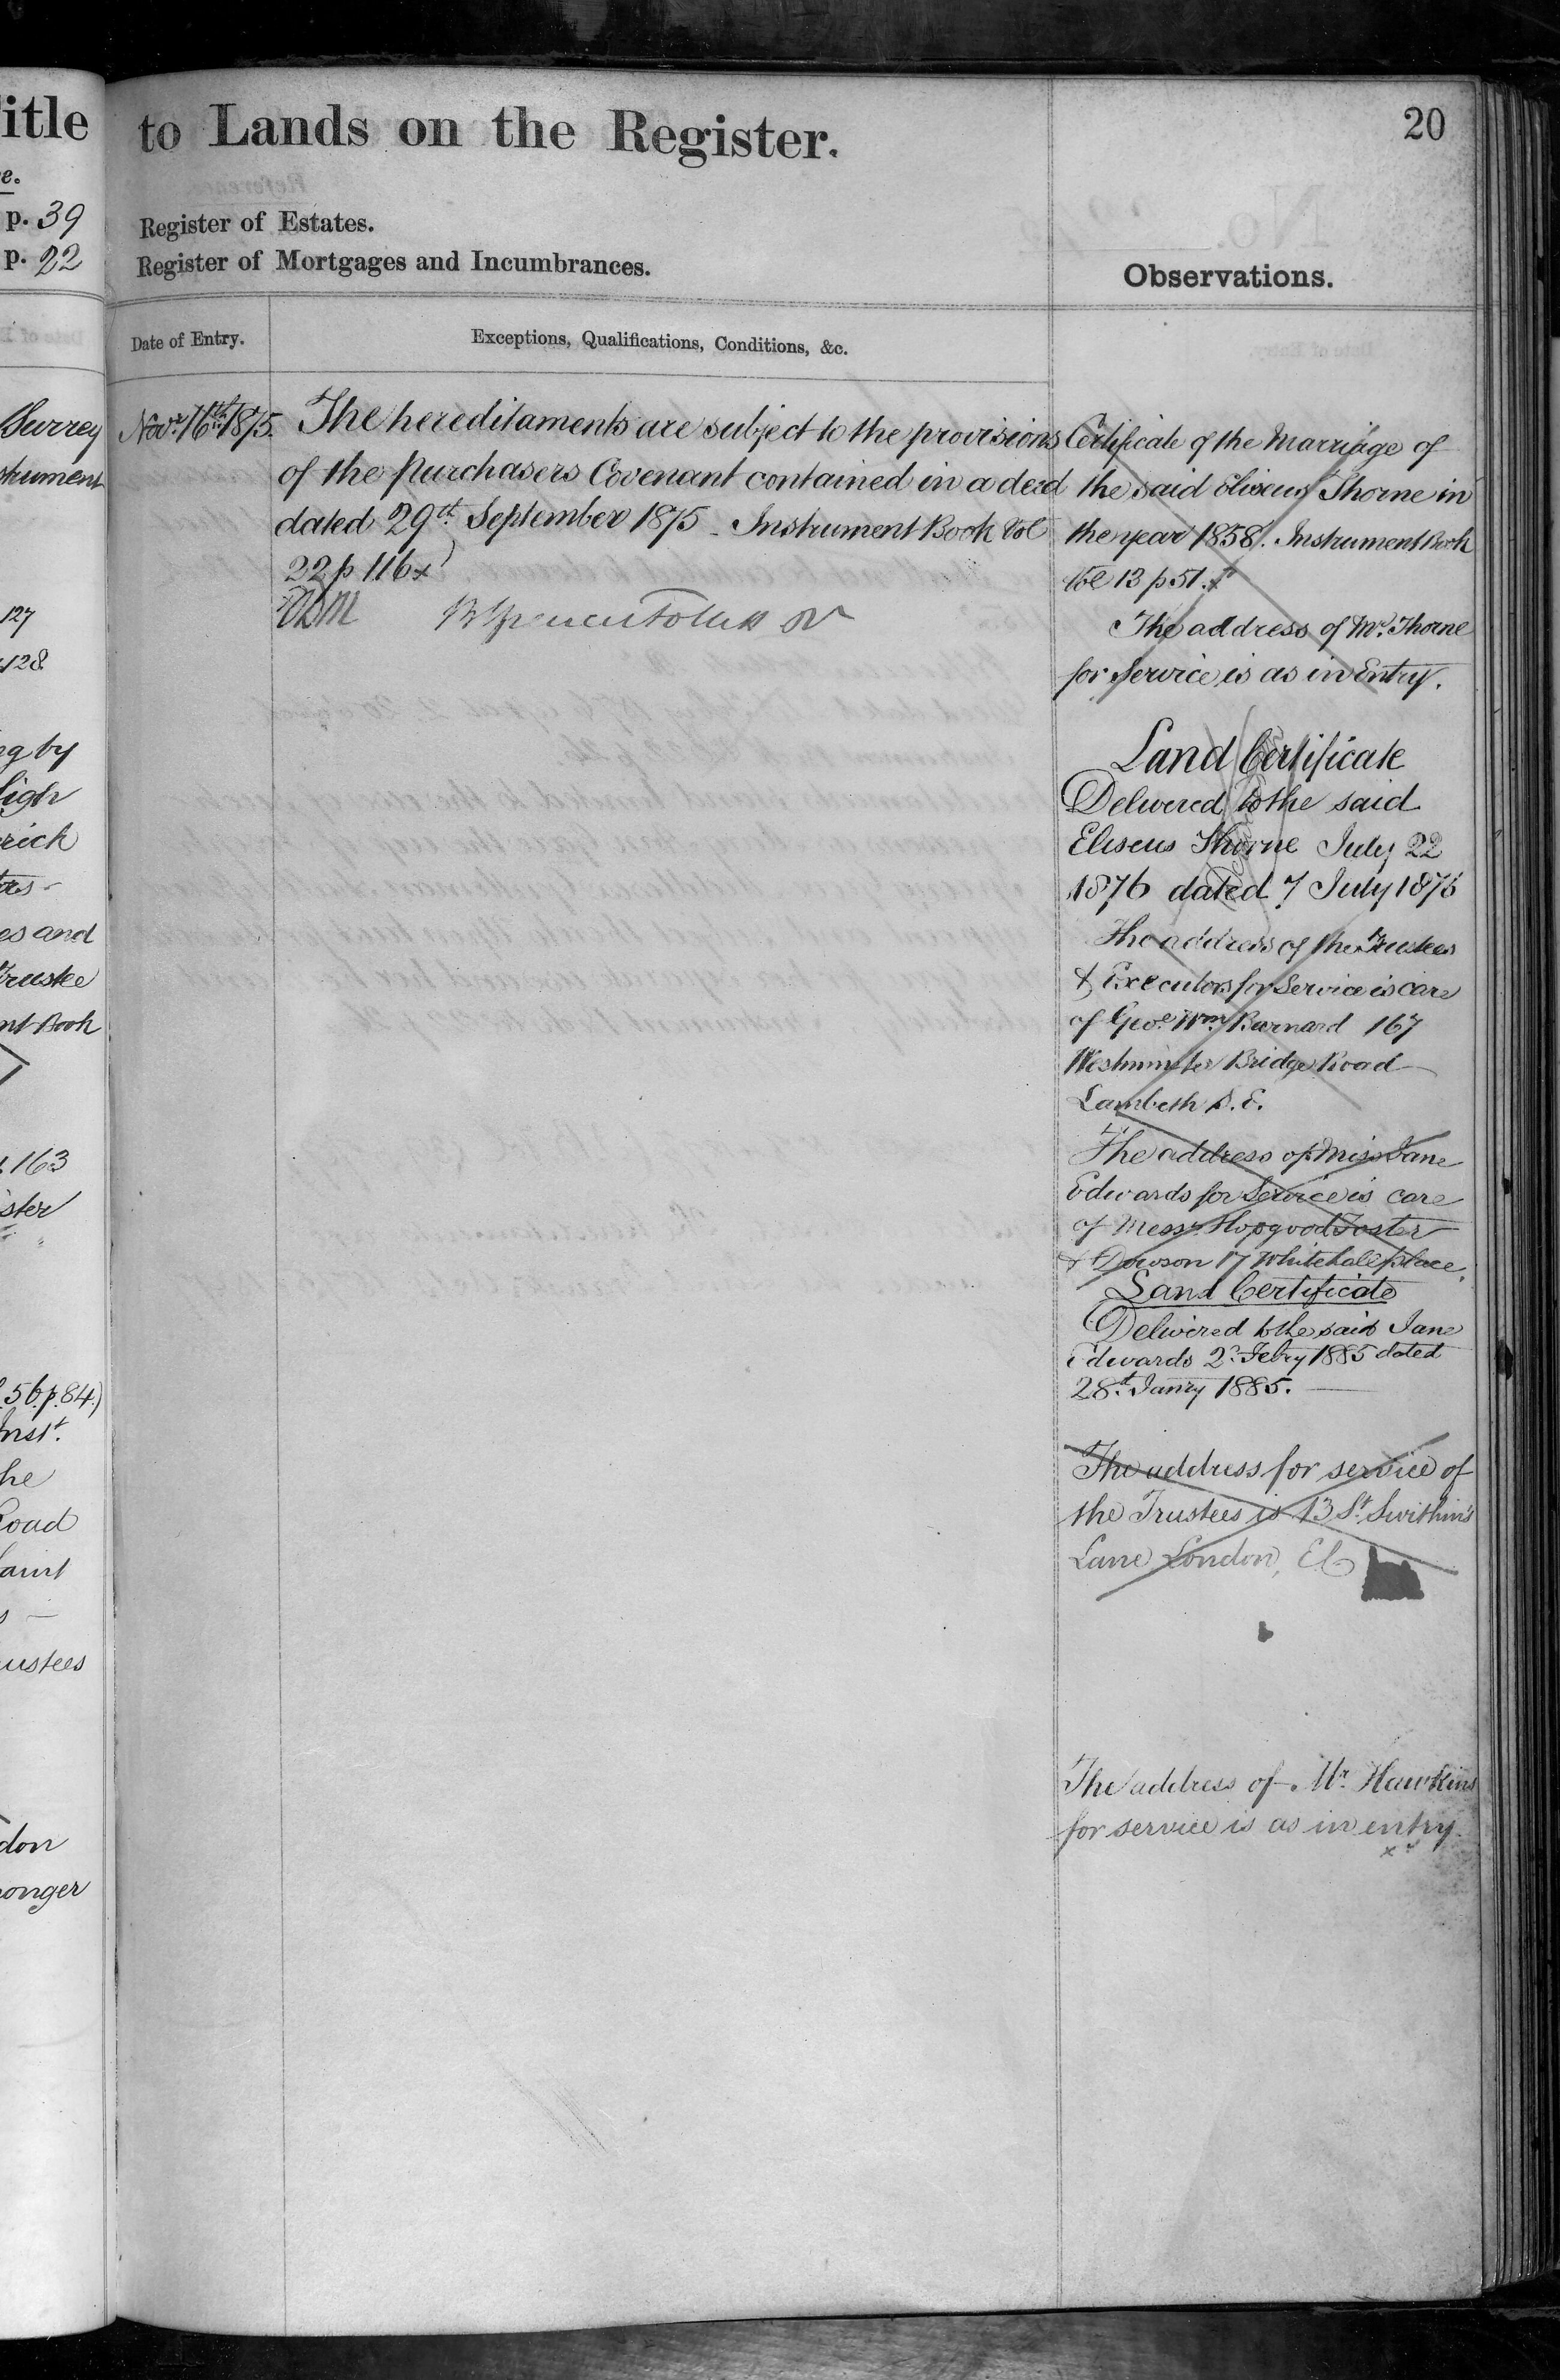 itle
e.
p. 39
p. 22
Surrey
strument
127
128
ng by
High
rich
es and
Trustee
nt Book
163
ister
56.p.84.)
Inst.
he
Road
aint
ustees
don
onger
to Lands on the Register.
20
Register of Estates.
Register of Mortgages and Incumbrances.
Observations.
Date of Entry.
Exceptions, Qualifications, Conditions, &c.
Novr. 16th 1875.
The hereditaments are subject to the provisions
of the Purchasers Covenant contained in a deed
dated 29th September 1875 - Instrument Book Vol
22 p 116
Certificate of the Marriage of
the said Eliseus Thorne in
the year 1858. Instrument Book
Vol 13 p 51.
The address of Mr. Thorne
for Service is as in Entry.
Land Certificate
Delivered to the said
Eliseus Thorne July 22
1876 dated 7 July 1876
The address of the Trustees
& Executors for Service is care
of Geo. Wm. Burnard 167
Westminster Bridge Road
Lambeth S.E.
The address of Miss Jane
Edwards for Service is care
of Messrs. Hopgood Foster
& Dowson 17 Whitehall place.
Land Certificate
Delivered to the said Jane
Edwards 2d. Febry 1885 dated
28th. Janry 1885.
The address for service of
the Trustees is 13 St. Swithin's
Lane London, EC
The address of Mr. Hawkins
for service is as in entry.